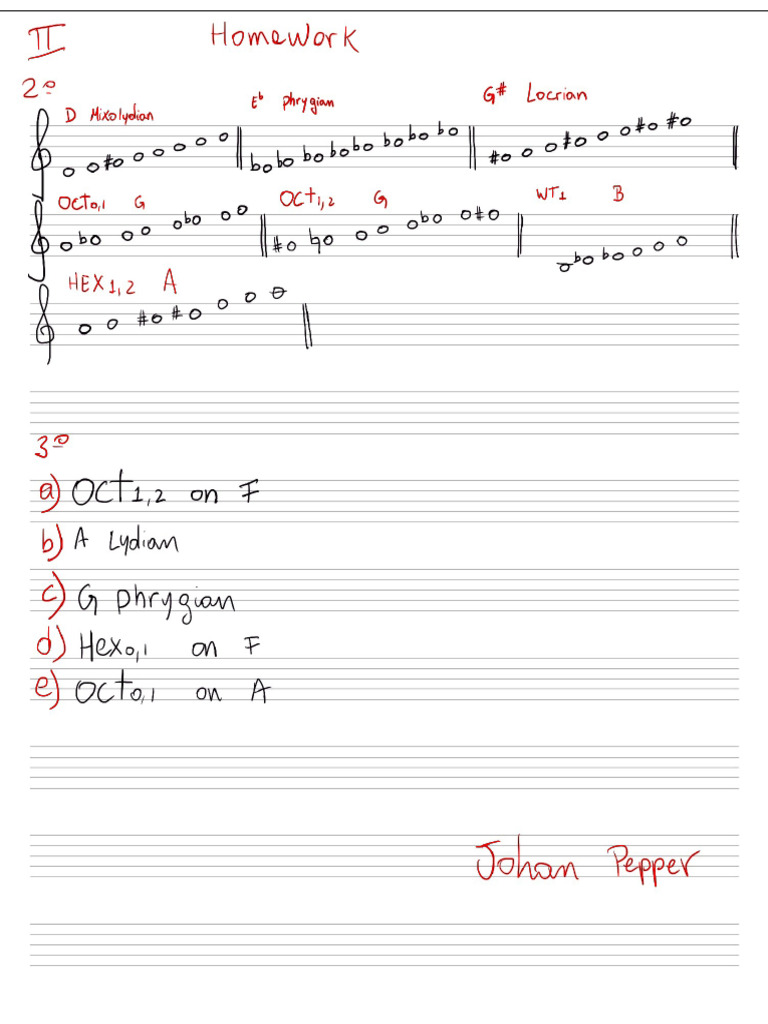 II Homework
2º
D Mixolydian Eb phrygian G# Locrian
OCT0,1 G OCT1,2 G WT1 B
HEX1,2 A
3º
a) OCT1,2 on F
b) A Lydian
c) G phrygian
d) Hex0,1 on F
e) OCT0,1 on A
Johan Pepper